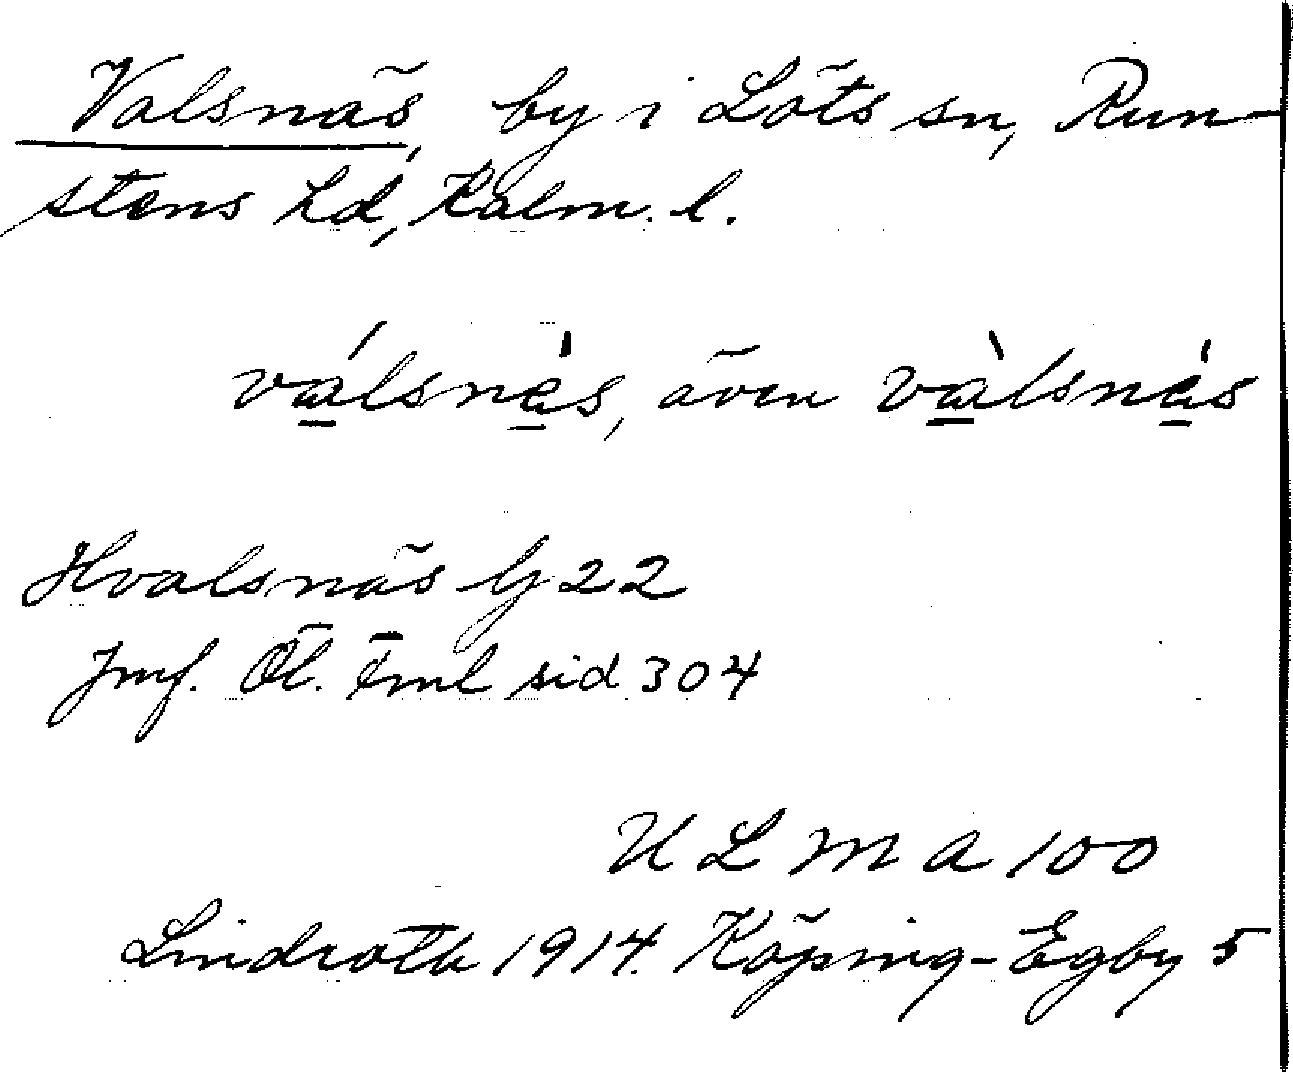 Valsnäs, by i Löts sn, Run-
stens hd, Kalm. l.
válsnès, även vàlsnès
Hvalsnäs G 22
Jmf. Öl. sid 304
U L M A 100
Lindroth 1914. Köping-Egby 5